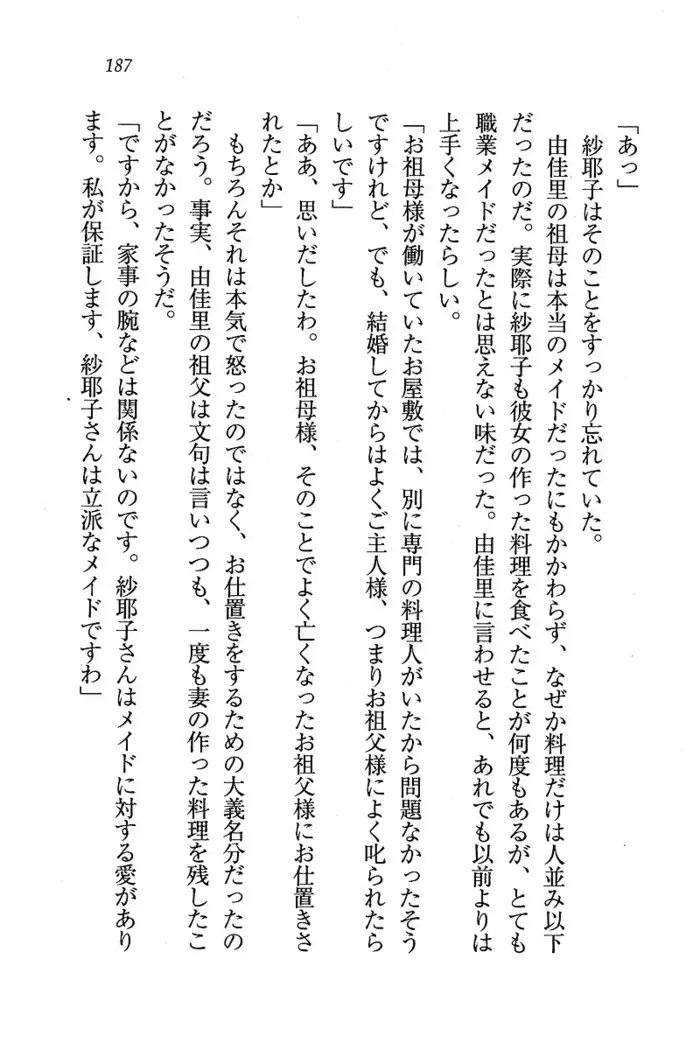 187
「あっ」
紗耶子はそのことをすっかり忘れていた。
由佳里の祖母は本当のメイドだったにもかかわらず、なぜか料理だけは人並み以下
だったのだ。実際に紗耶子も彼女の作った料理を食べたことが何度もあるが、とても
職業メイドだったとは思えない味だった。由佳里に言わせると、あれでも以前よりは
上手くなったらしい。
「お祖母様が働いていたお屋敷では、別に専門の料理人がいたから問題なかったそう
ですけれど、でも、結婚してからはよくご主人様、つまりお祖父様によく叱られたら
しいです」
「ああ、思いだしたわ。お祖母様、そのことでよく亡くなったお祖父様にお仕置きさ
れたとか」
もちろんそれは本気で怒ったのではなく、お仕置きをするための大義名分だったの
だろう。事実、由佳里の祖父は文句は言いつつも、一度も妻の作った料理を残したこ
とがなかったそうだ。
「ですから、家事の腕などは関係ないのです。紗耶子さんはメイドに対する愛があり
ます。私が保証します、紗耶子さんは立派なメイドですわ」